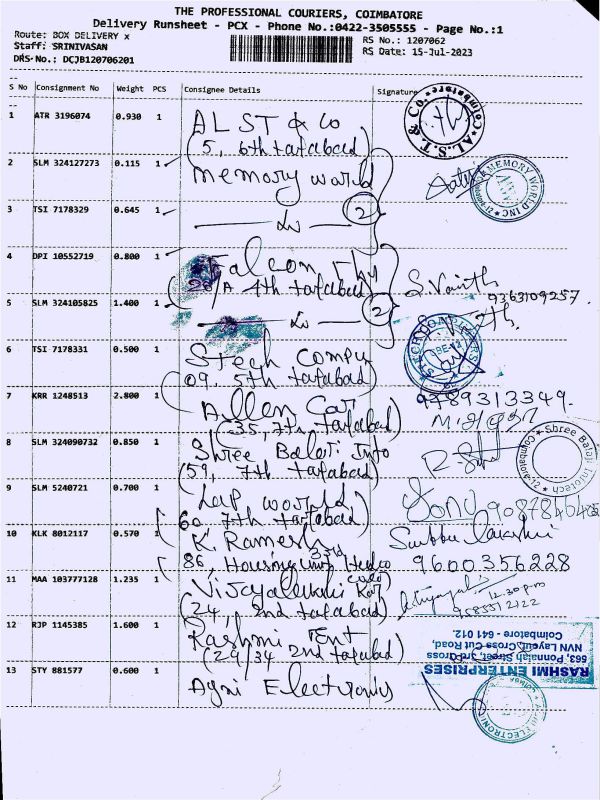 THE PROFESSIONAL COURIERS, COIMBATORE
Delivery Runsheet - PCX - Phone No.:0422-3505555 - Page No.:1
Route: BOX DELIVERY x
RS No.: 1207062
Staff: SRINIVASAN
RS Date: 15-Jul-2023
DRS No.: DCJB120706201
S No Consignment No Weight PCS Consignee Details Signature
1 ATR 3196074 0.930 1 ALST & Co
(5, 6th tatabad)
A.L.S.T. & Co. Coimbatore
2 SLM 324127273 0.115 1 Memory world
MEMORY WORLD INC
3 TSI 7178329 0.645 1
2
4 DPI 10552719 0.800 1 Falcon
28/A 4th tatabad)
9363109257
5 SLM 324105825 1.400 1
2
6 TSI 7178331 0.500 1 Stech Compu
09, 5th tatabad)
7 KRR 1248513 2.800 1 Allen Car
(35, 7th tatabad)
9789313349
8 SLM 324090732 0.850 1 Shree Balaji Info
(59, 7th tatabad)
Shree Balaji Infotech Coimbatore-12
9 SLM 5240721 0.700 1 Lap world
60, 7th tatabad
10 KLK 8012117 0.570 1 K. Ramesh
86, Housing unit
9600356228
11 MAA 103777128 1.235 1
(24, 2nd tatabad)
12.30pm
12 RJP 1145385 1.600 1 Rashmi Ent
(29/34 2nd tatabad)
RASHMI ENTERPRISES
663, Ponnaiah Street, 3rd Cross
NVN Layout, Cross Cut Road,
Coimbatore - 641 012.
13 STY 881577 0.600 1 Agni Electronics